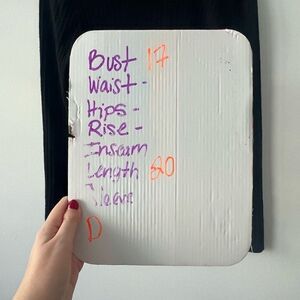 Bust 17
Waist -
Hips -
Rise -
Inseam
Length 20
Sleeve
D